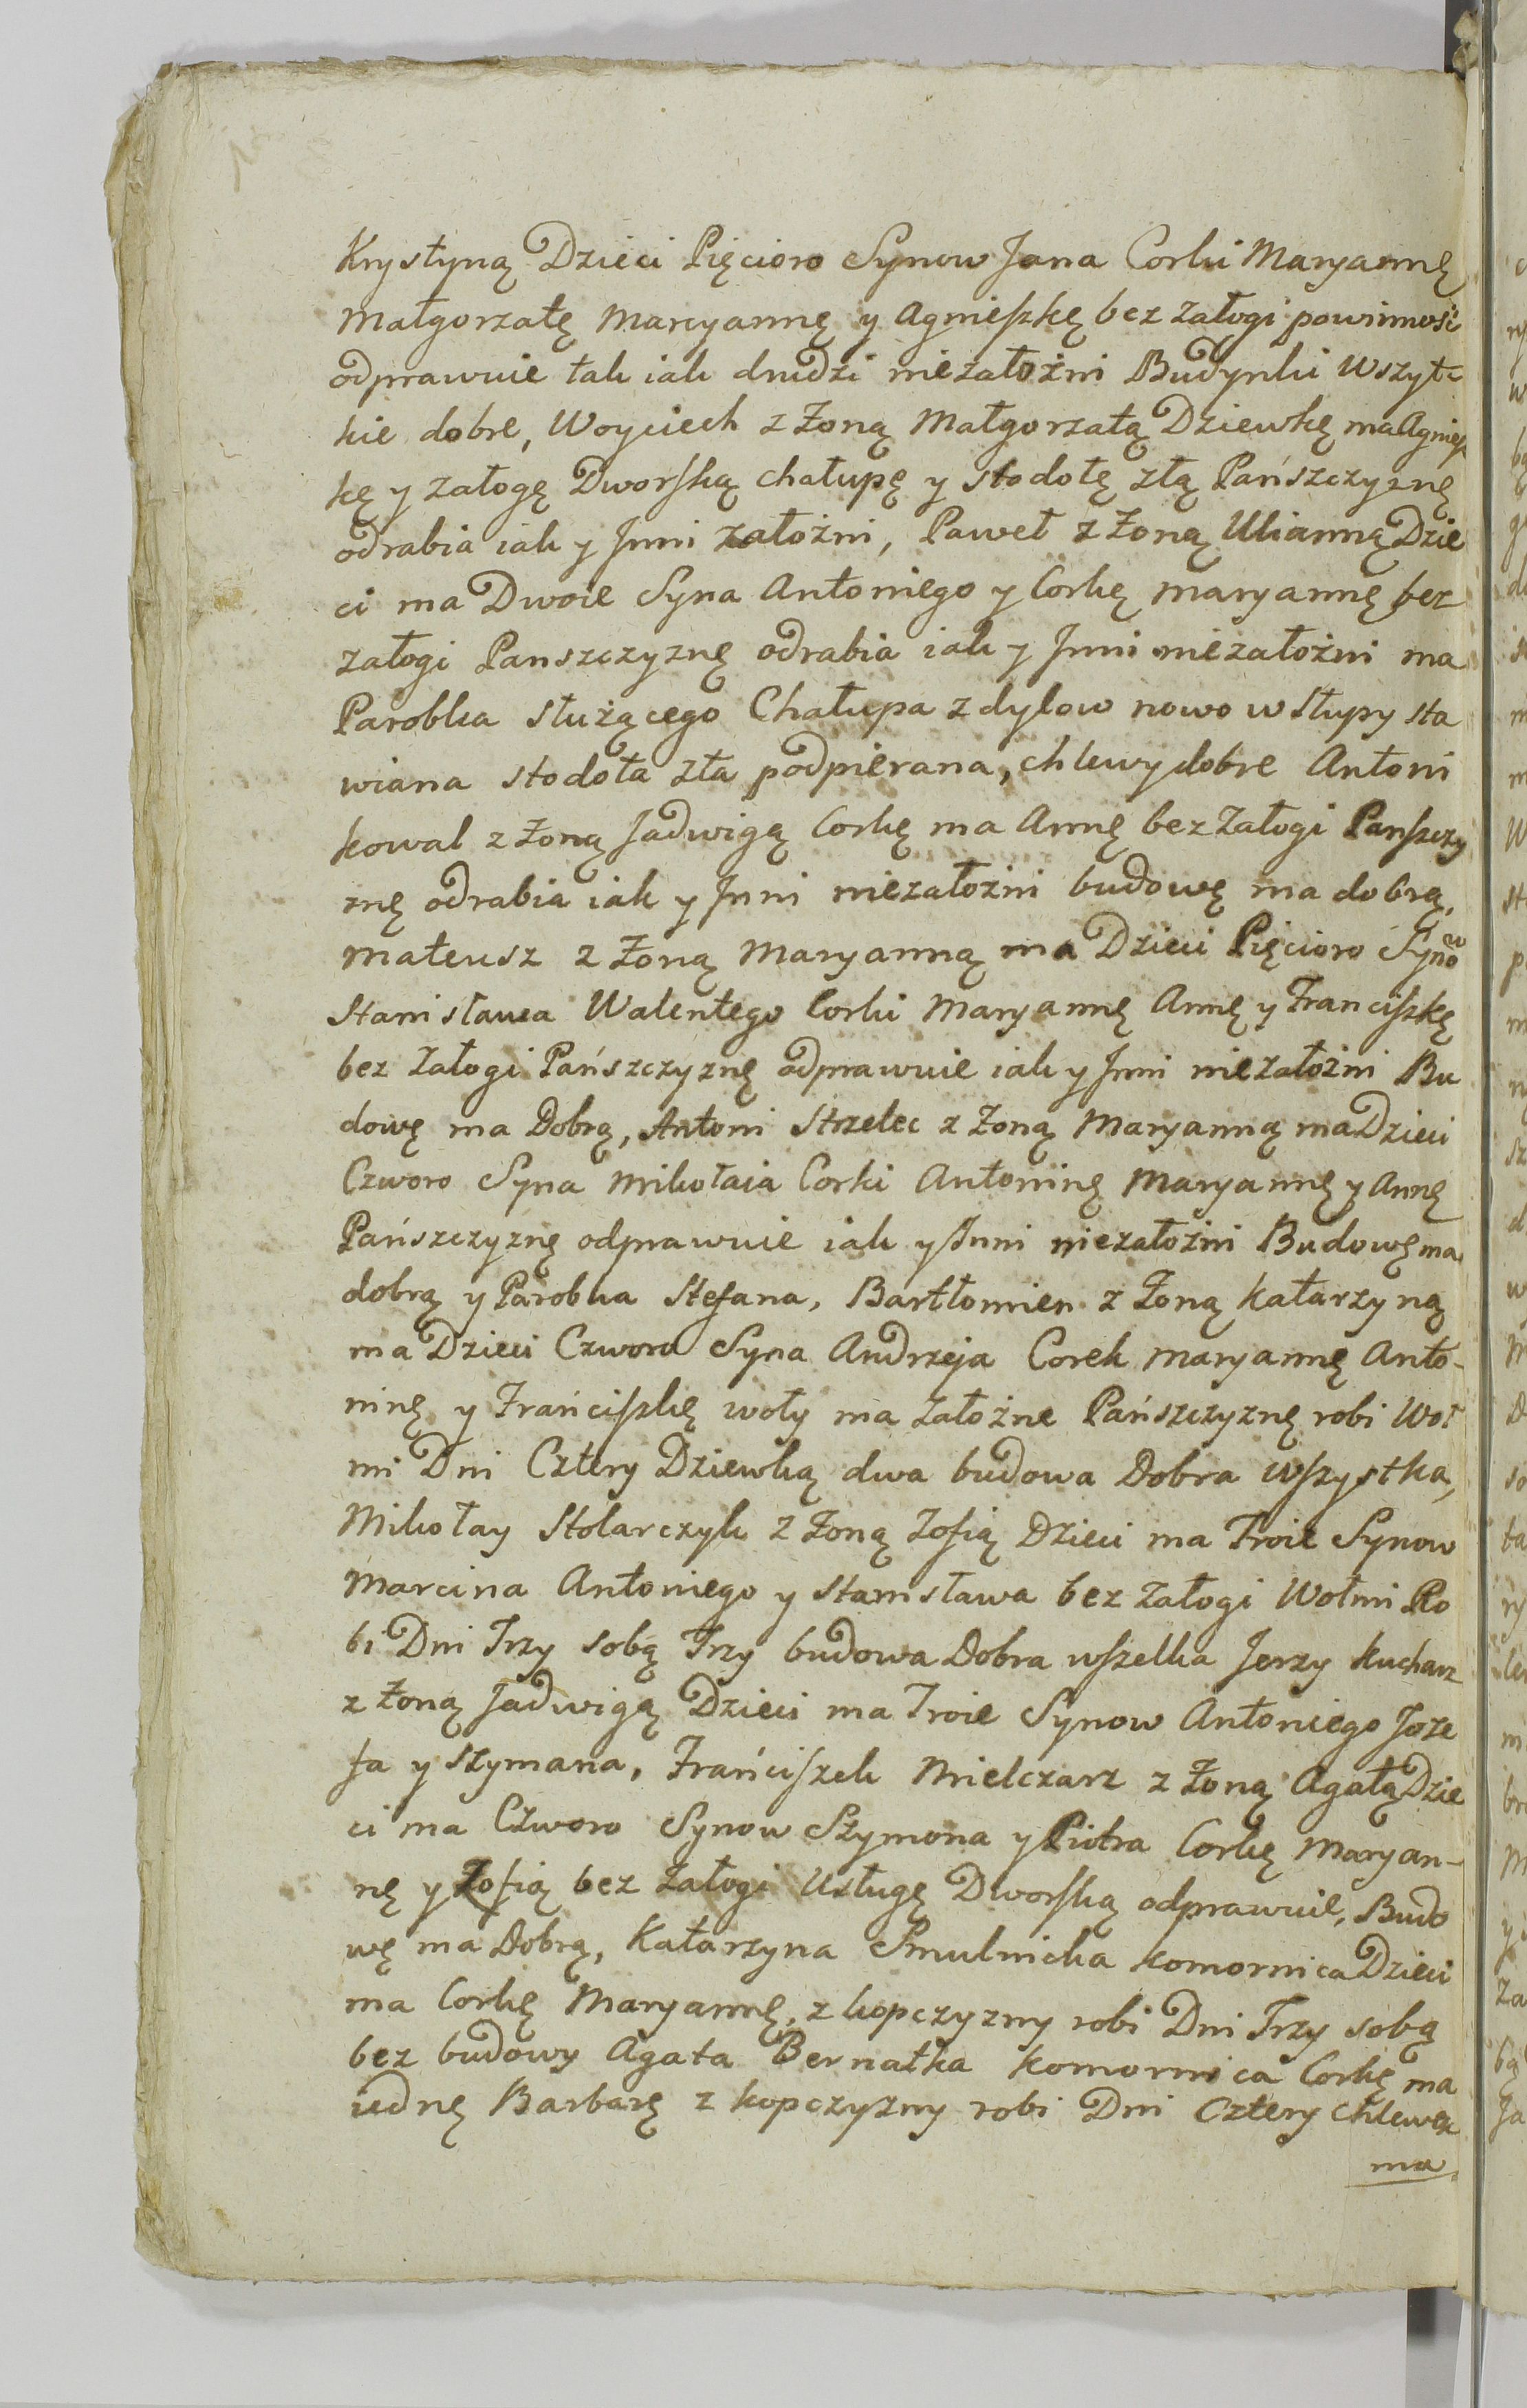 Krystyną Dzieci Pięcioro Synow Jana Corki Maryannę
Małgorzatę Maryannę y Agnieszkę bez Załogi powinność
odprawuie tak iak drudzi niezałożni Budynki Wszyt-
kie dobre, Woyciech z Żoną Małgorzatą Dziewkę ma Agniesz
kę y Załogę Dworską chałupę y stodołę złą Pańszczyznę
odrabia iak y Jnni założni, Paweł z Żoną Ulianną Dzie
ci ma Dwoie Syna Antoniego y Corkę Maryannę bez
załogi Panszczyznę odrabia iak y Jnni niezałożni ma
Parobka służącego Chałupa z dylow nowo w słupy sta
wiana stodoła zła podpierana, chlewy dobre Antoni
Kowal z Żoną Jadwigą Corkę ma Annę bez Załogi Panszczy
znę odrabia iak y Jnni niezałożni budowę ma dobrą,
Mateusz z Żoną Maryanną ma Dzieci Pięcioro Synow
Stanisława Walentego Corki Maryannę Annę y Franciszkę
bez Załogi Pańszczyznę odprawuie iak y Jnni niezałożni Bu
dowę ma Dobrą, Antoni Strzelec z Żoną Maryanną ma Dzieci
Czworo Syna Mikołaia Corki Antoninę Maryannę y Annę
Pańszczyznę odprawuie iak y Jnni niezałożni Budowę ma
dobrą y Parobka Stefana, Bartłomiey z Żoną Katarzyną
ma Dzieci Czworo Syna Andrzeja Corek Maryannę Anto-
ninę y Frańciszkę woły ma Założne Pańszczyznę robi Woł
mi Dni Cztery Dziewką dwa budowa Dobra wszystka,
Mikołay Stolarczyk z Żoną Zofią Dzieci ma Troie Synow
Marcina Antoniego y Stanisława bez Załogi Wołmi Ro
bi Dni Trzy sobą Trzy budowa Dobra wszelka Jerzy Kucharz
z Żoną Jadwigą Dzieci ma Troie Synow Antoniego Joze
fa y Szymana, Frańciszek Mielczarz z Żoną Agatą Dzie
ci ma Czworo Synow Szymona y Piotra Corkę Maryan-
nę y Zofią bez Załogi Usługę Dworską odprawuie, Budo
wę ma Dobrą, Katarzyna Smulnicka Komornica Dzieci
ma Corkę Maryannę, z kopczyzny robi Dni Trzy sobą
bez budowy Agata Bernatka Komornica Corkę ma
iednę Barbarę z kopczyzny robi Dni Cztery Chlewek
ma.